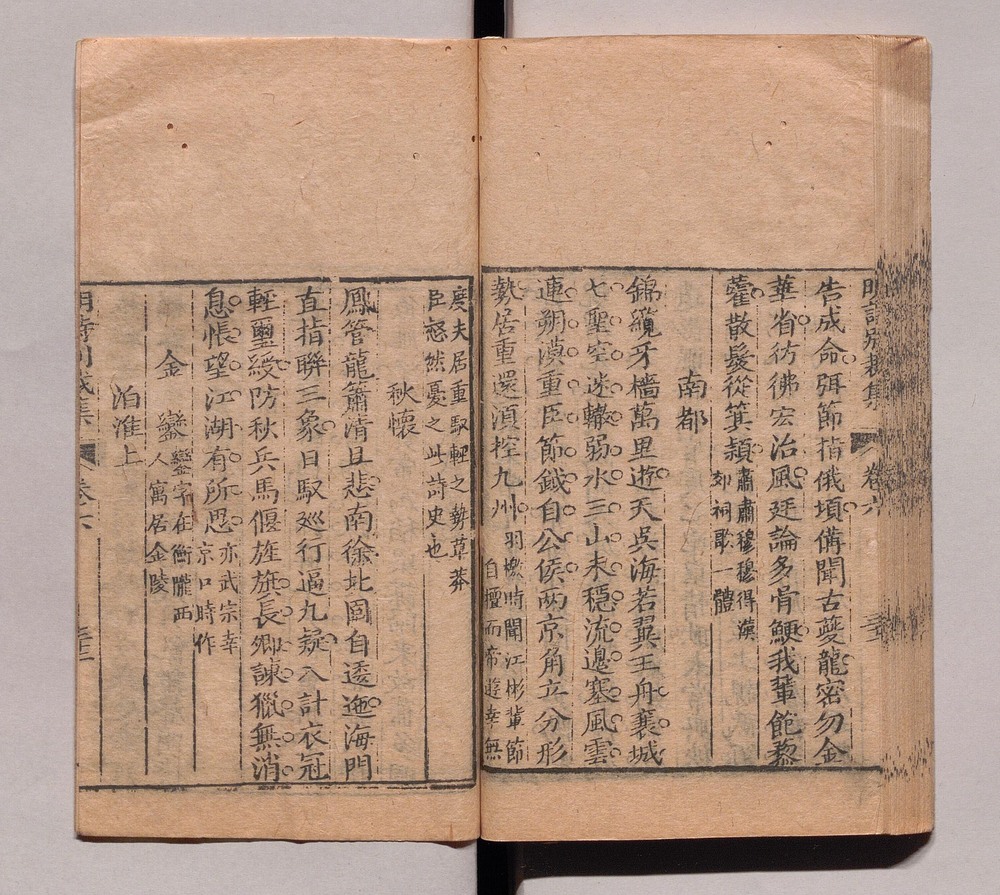 明詩別裁集 卷六
告成命弭節指俄頃備聞古夔龍密勿金
華省彷彿宏治風廷論多骨鯁我輩飽藜
藿散髮從箕潁肅肅穆穆得漢
郊祠歌一體
南都
錦纜牙檣萬里遊天吳海若翼王舟襄城
七聖空迷轍弱水三山未穩流邊塞風雲
連朔漠重臣節鉞自公侯兩京角立分形
勢居重還須控九州羽檄時聞江彬輩節
自檀而帝遊幸無
度夫居重馭輕之勢草莽
臣怒然憂之此詩史也
秋懷
鳳管龍簫清且悲南徐北固自逶迤海門
直指聯三象日馭巡行逼九疑入計衣冠
輕璽綬防秋兵馬偃旌旗長卿諫獵無消
息悵望江湖有所思亦武宗幸
京口時作
金鑾鑾字在衡隴西
人寓居金陵
泊淮上
明詩別裁集 卷六